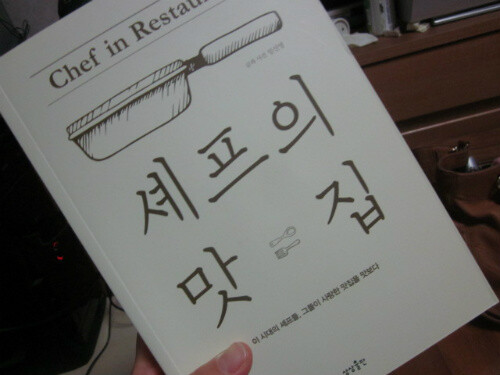 Chef in Restau
셰프의
맛 집
이 시대의 셰프들, 그들이 사랑한 맛집을 맛보다